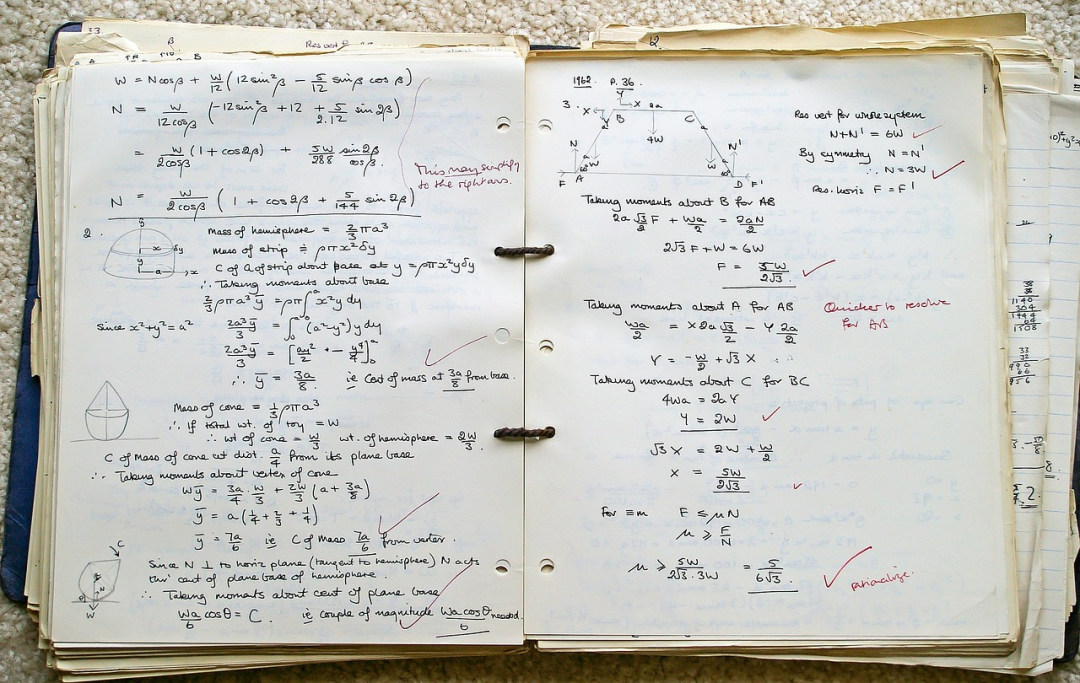 33
β
Res vert
W = Ncosβ + W/12 (12 sin²β − 5/12 sinβ cos β)
N = W/12cosβ (−12 sin²β + 12 + 5/2.12 sin 2β)
= W/2cosβ (1 + cos2β) + 5W/288 sin2β/cosβ.
This may simplify
to the right ans.
N = W/2cosβ (1 + cos2β + 5/144 sin 2β)
2.
Mass of hemisphere = 2/3 πa³
Mass of strip ≡ ρπx²δy
C of G of strip about base at y = ρπx²yδy
∴ Taking moments about base
2/3 ρπa³ȳ = ρπ∫₀ᵃ x²y dy
Since x²+y² = a² 2a³ȳ/3 = ∫₀ᵃ (a²−y²)y dy
2a³ȳ/3 = [a²y²/2 − y⁴/4]₀ᵃ
∴ ȳ = 3a/8. ie Cent of mass at 3a/8 from base.
Mass of cone = 1/3 ρπa³
∴ If total wt. of toy = W
∴ wt of cone = W/3 wt. of hemisphere = 2W/3.
C of Mass of cone at dist. a/4 from its plane base
∴ Taking moments about vertex of cone
Wȳ = 3a/4 . W/3 + 2W/3 (a + 3a/8)
ȳ = a(1/4 + 2/3 + 1/4)
ȳ = 7a/6 ie C of Mass 7a/6 from vertex.
C
W
Since N ⊥ to horiz plane (tangent to hemisphere) N acts
thro' cent of plane base of hemisphere.
∴ Taking moments about cent of plane base
Wa/6 cosθ = C. ie couple of magnitude Wa cosθ/6 needed.
12.
1962. P. 36.
3.
Y
X X 2a
B C
4W
N N'
W W
F A D F'
Res vert for whole system
N+N' = 6W
By symmetry N = N'
∴ N = 3W
Res. horiz F = F'
Taking moments about B for AB
2a √3/2 F + Wa/2 = 2aN/2
2√3 F + W = 6W
F = 5W/2√3.
Taking moments about A for AB
Quicker to resolve
for AB
Wa/2 = X 2a √3/2 − Y 2a/2
Y = −W/2 + √3 X
Taking moments about C for BC
4Wa = 2aY
Y = 2W
√3 X = 2W + W/2
X = 5W/2√3
For ≡m F ≤ μN
μ ≥ F/N
μ ≥ 5W/2√3.3W = 5/6√3.
rationalize.
1140
304
1444
64
1508
33
990
66
956